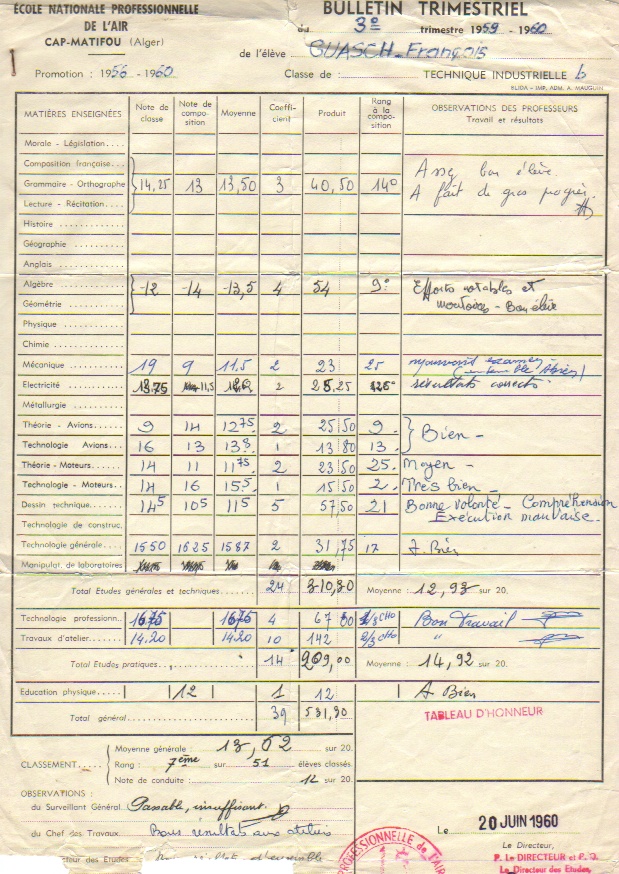 ÉCOLE NATIONALE PROFESSIONNELLE
DE L'AIR
CAP-MATIFOU (Alger)
Promotion : 1956 - 1960
BULLETIN TRIMESTRIEL
du 3e trimestre 1959 - 1960
de l'élève GUASCH François
Classe de : TECHNIQUE INDUSTRIELLE b
BLIDA - IMP. ADM. A. MAUGUIN
MATIÈRES ENSEIGNÉES Note de classe Note de composition Moyenne Coefficient Produit Rang à la composition OBSERVATIONS DES PROFESSEURS Travail et résultats
Morale - Législation
Composition française
Grammaire - Orthographe 14,25 13 13,50 3 40,50 14e Assez bon élève.
Lecture - Récitation A fait de gros progrès.
Histoire
Géographie
Anglais
Algèbre 12 14 13,5 4 54 9e Efforts notables et
Géométrie Bon élève
Physique
Chimie
Mécanique 19 9 11,5 2 23 25
Electricité 2 résultats corrects
Métallurgie
Théorie - Avions 9 14 1275 2 25 50 9 Bien -
Technologie Avions 16 13 138 1 13 80 13
Théorie - Moteurs 14 11 1175 2 23 50 25. Moyen -
Technologie - Moteurs 14 16 155 1 15 50 2. Très bien -
Dessin technique 145 105 115 5 57,50 21 Bonne volonté - Compréhension
Exécution mauvaise.
Technologie de construc.
Technologie générale 1550 1625 1587 2 31,75 17 A. Bien
Manipulat. de laboratoires
Total Etudes générales et techniques 24 310,80 Moyenne : 12,93 sur 20.
Technologie professionn. 1675 1675 4 67 00 Bon travail
Travaux d'atelier 14.20 14.20 10 142 "
Total Etudes pratiques 14 209,00 Moyenne : 14,92 sur 20.
Education physique 12 1 12 A Bien
Total général 39 531,80 TABLEAU D'HONNEUR
CLASSEMENT Moyenne générale : 13,62 sur 20.
Rang : 7ème sur 51 élèves classés
Note de conduite : 12 sur 20.
OBSERVATIONS :
du Surveillant Général Passable, insuffisant.
du Chef des Travaux Bons résultats aux ateliers
cteur des Etudes d'ensemble
PROFESSIONNELLE de l'AIR
Le 20 JUIN 1960
Le Directeur,
P. Le DIRECTEUR et P. O.
Le Directeur des Etudes,